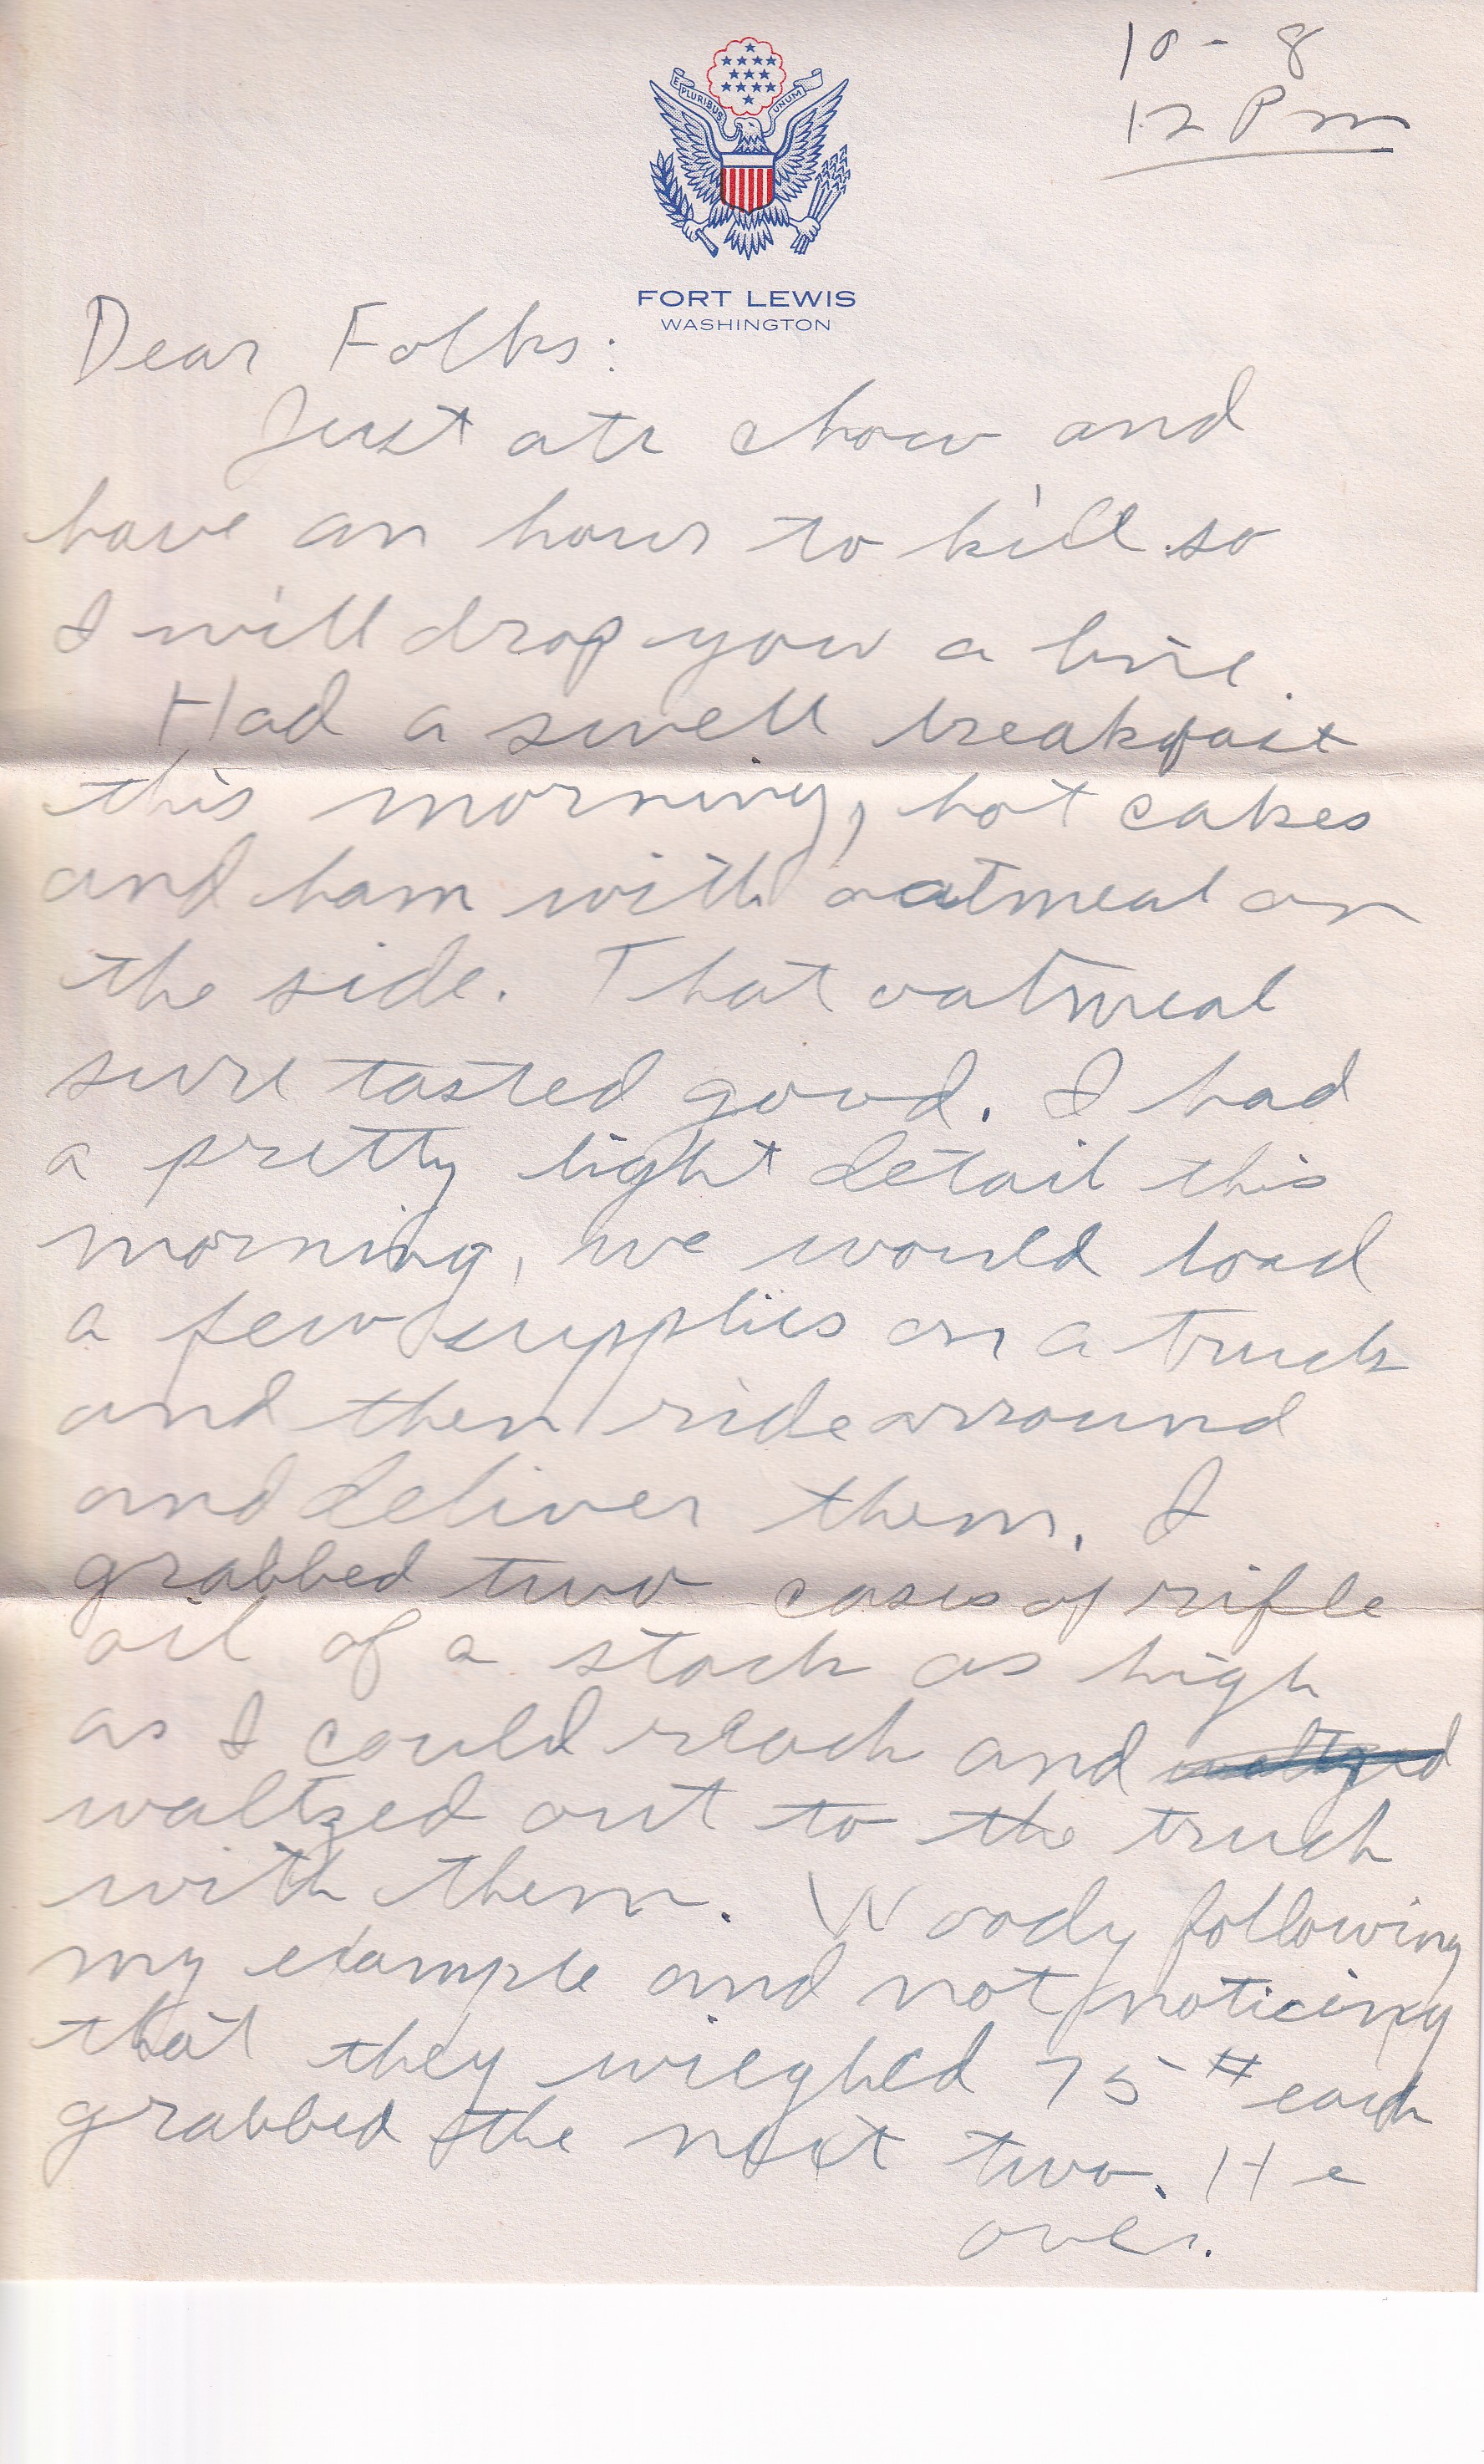 10-8
12 Pm
E PLURIBUS UNUM
FORT LEWIS
WASHINGTON
Dear Folks:
Just ate chow and
have an hour to kill so
I will drop you a line.
Had a swell breakfast
this morning, hot cakes
and ham with oatmeal on
the side. That oatmeal
sure tasted good. I had
a pretty light detail this
morning, we would load
a few supplies on a truck
and then ride arround
and deliver them. I
grabbed two cases of rifle
oil of a stack as high
as I could reach and waltzed
waltzed out to the truck
with them. Woody following
my example and not noticing
that they wieghed 75# each
grabbed the next two. He
over.